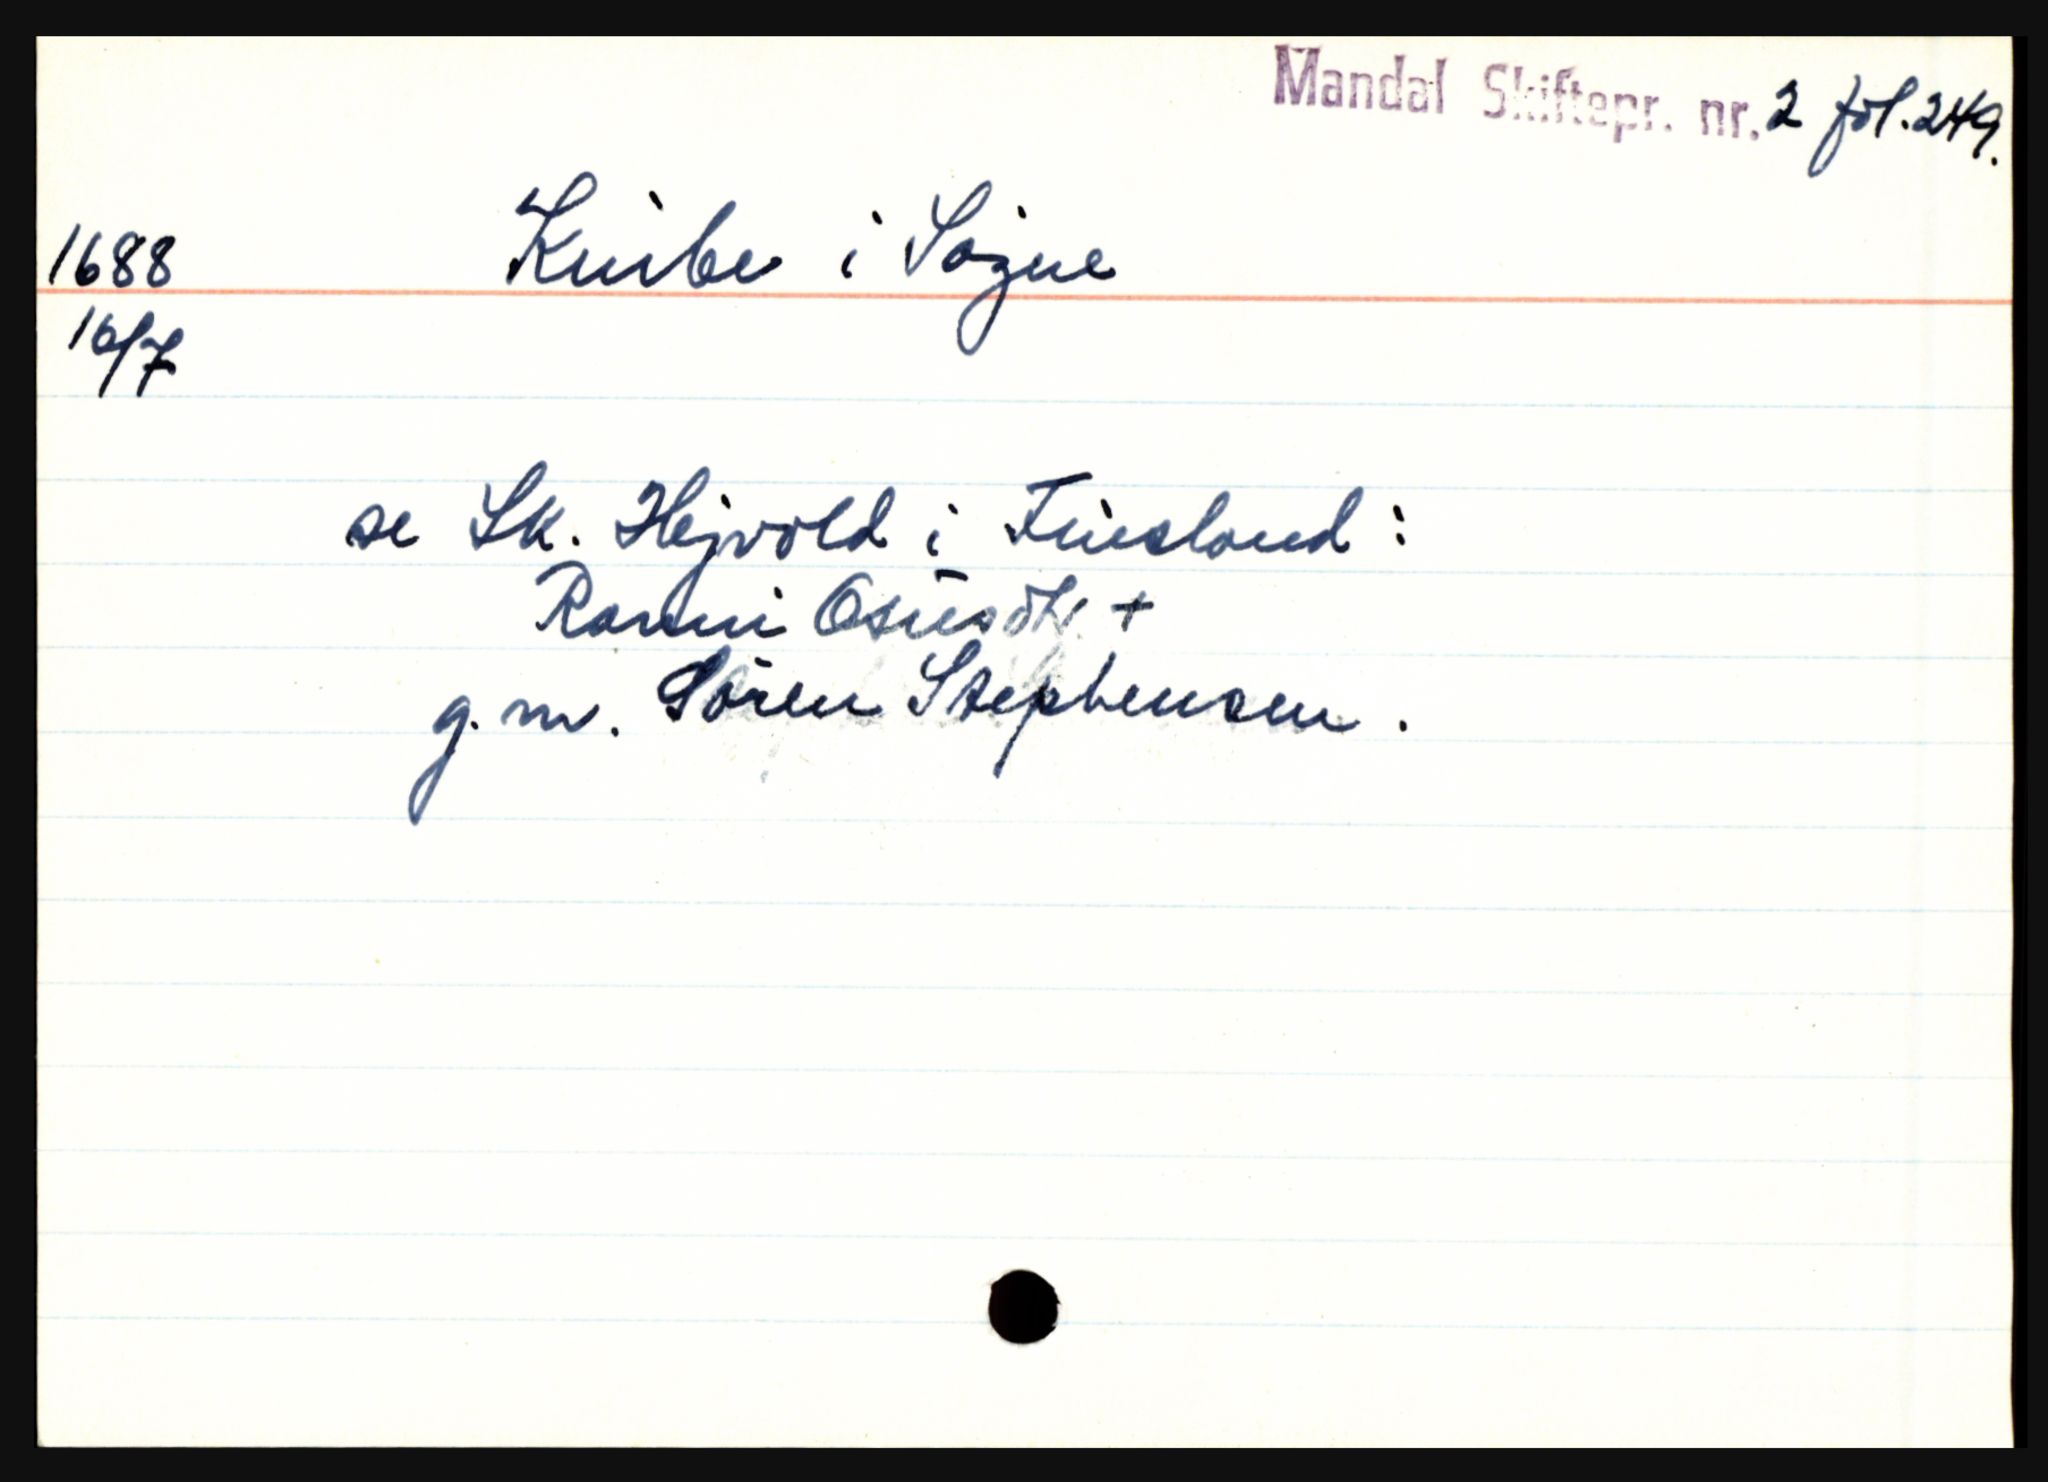 Mandal Skiftepr. nr. 2 fol. 249.
1688 Knibe i Søgne
16/7
se Sk. Hejvold i Finsland:
Ranni Osnesdtr. +
g. m. Sören Stephensen.